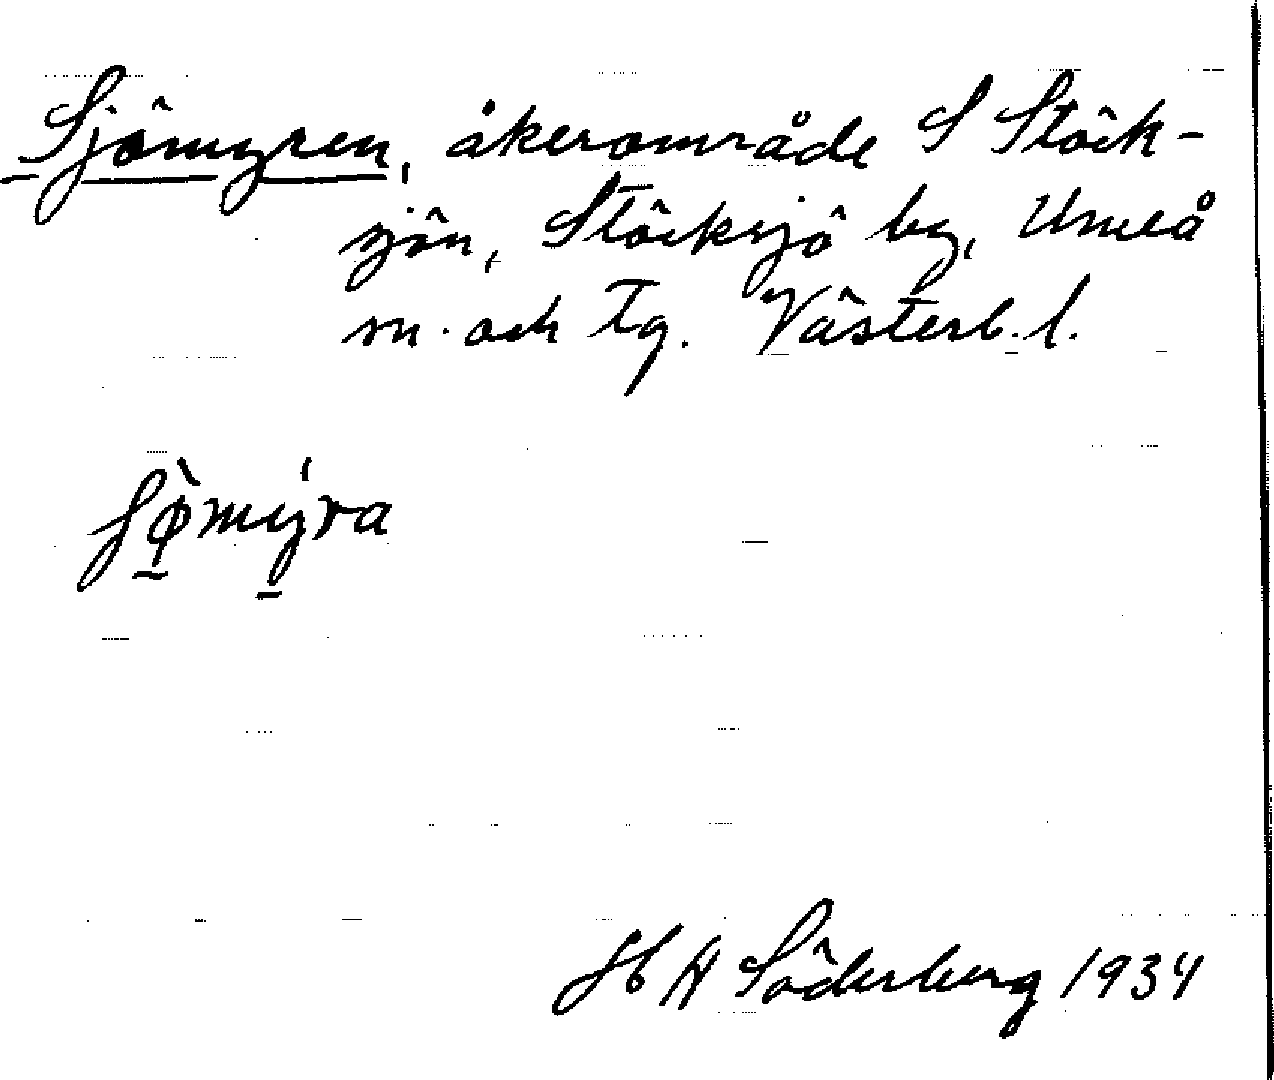 Sjömyren, åkerområde S Stöck-
sjön, Stöcksjö by, Umeå
sn. och tg. Västerb. l.
sø̀mýra
H H Söderberg 1934